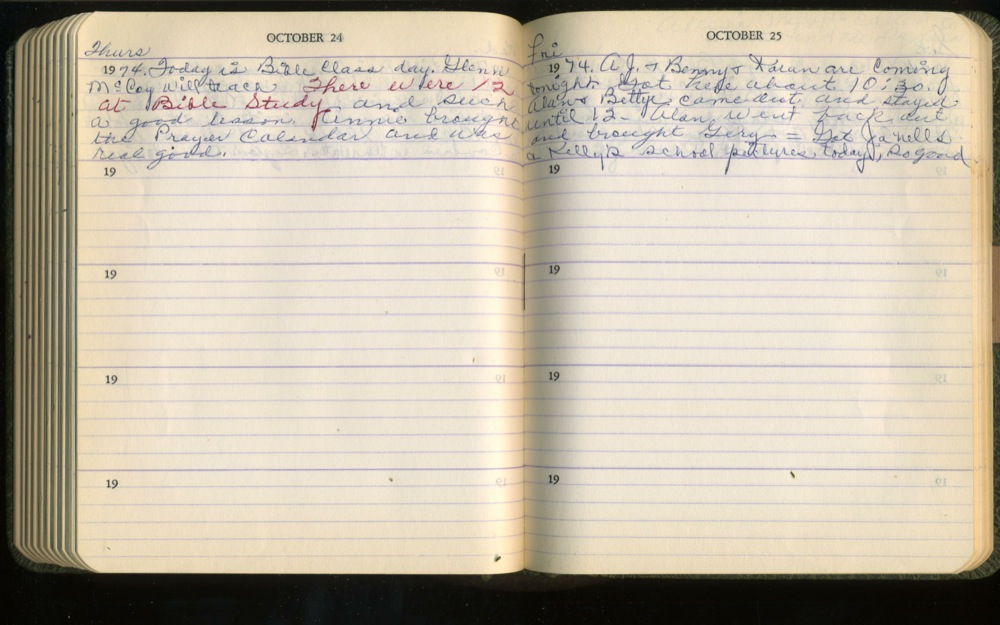 OCTOBER 24
Thurs
1974. Today is Bible Class day. Glenn
McCoy will teach There were 12
at Bible Study and such
a good lesson. Jinnie brought
the Prayer Calendar and was
real good.
19
19
19
19
OCTOBER 25
Fri
1974. A.J. & Benny & Karen are coming
tonight Got here about 10:30.
Alan & Betty came out and stayed
until 12 - Alan went back out
and brought = Got Janells
a Kellys school pictures today, so good
19
19
19
19